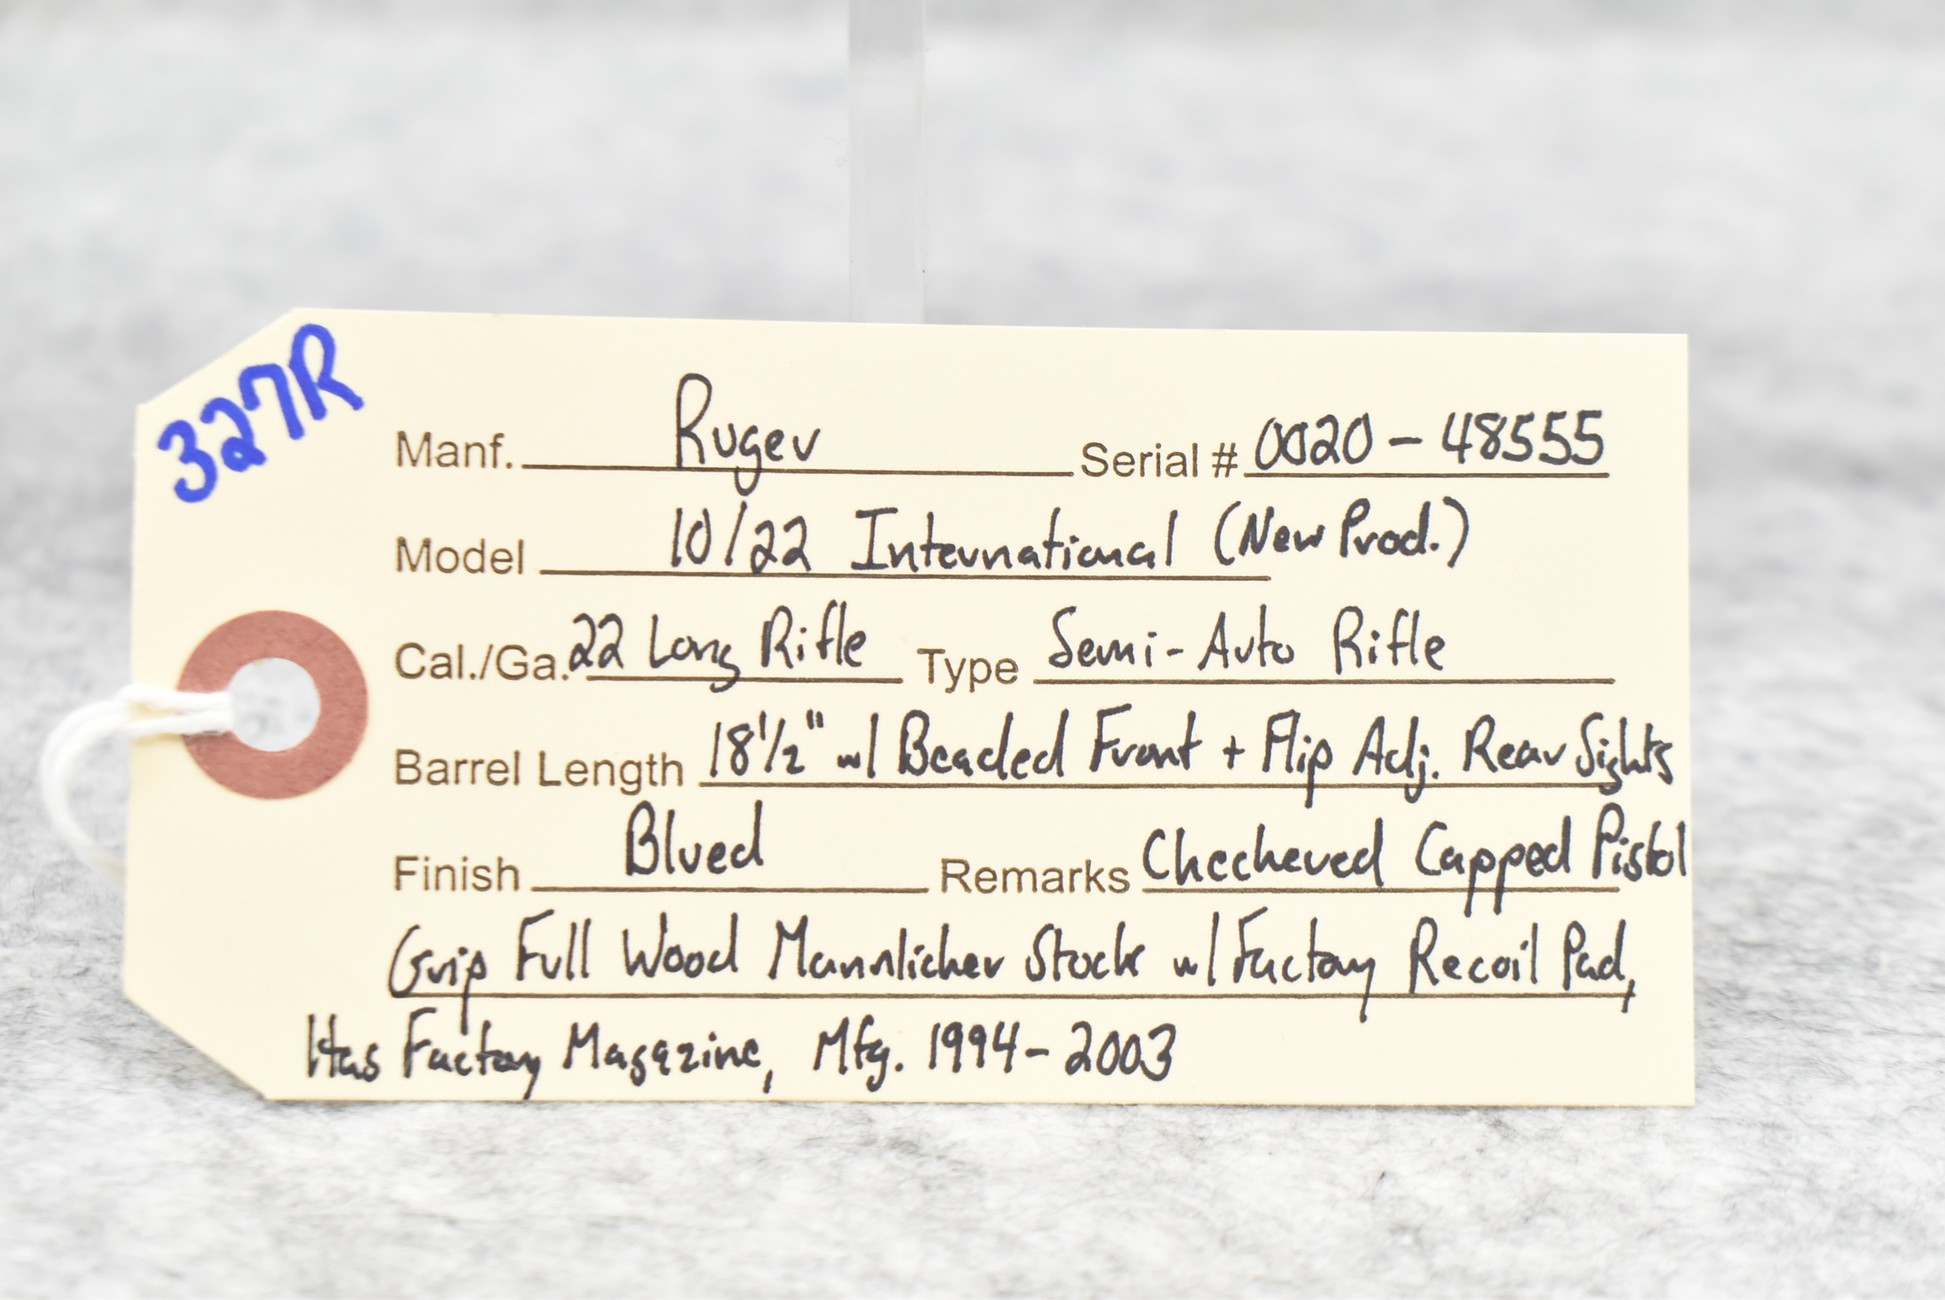 327R
Manf. Ruger Serial # 0020-48555
Model 10/22 International (New Prod.)
Cal./Ga. 22 Long Rifle Type Semi-Auto Rifle
Barrel Length 18 1/2" w/ Beaded Front + Flip Adj. Rear Sights
Finish Blued Remarks Checkered Capped Pistol
Grip Full Wood Mannlicher Stock w/ Factory Recoil Pad,
Has Factory Magazine, Mfg. 1994-2003